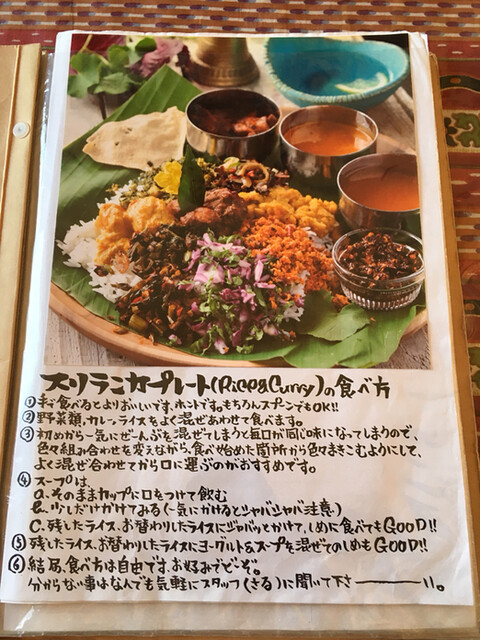 スリランカプレート(Rice&Curry)の食べ方
①手で食べるとよりおいしいです、ホントです。もちろんスプーンでもOK!!
②野菜類、カレー、ライスをよく混ぜあわせて食べます。
③初めから一気にぜーんぶを混ぜてしまうと毎口が同じ味になってしまうので、
色々組み合わせを変えながら、食べ始めた箇所から色々まきこむようにして、
よく混ぜ合わせてから口に運ぶのがおすすめです。
④スープは、
a、そのままカップに口をつけて飲む
b、少しだけかけてみる(一気にかけるとシャバシャバ注意、)
C、残したライス、お替わりしたライスにジャバッとかけて、しめに食べてもGOOD!!
⑤残したライス、お替わりしたライスにヨーグルト&スープを混ぜてのしめもGOOD!!
⑥結局、食べ方は自由です、お好みでどーぞ。
分からない事はなんでも気軽にスタッフ(さる)に聞いて下さーーーい。